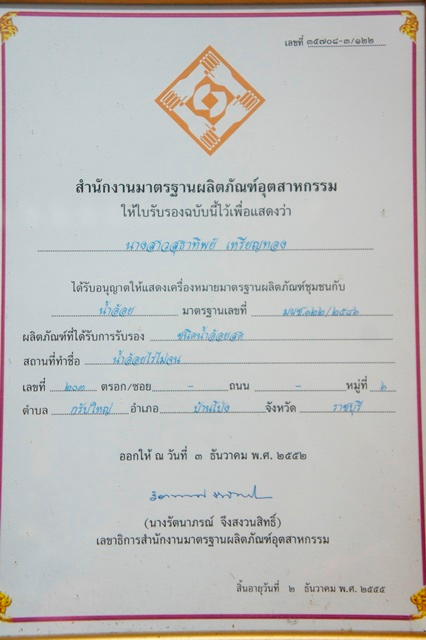 เลขที่ ๓๕๗๐๘-๓/๑๒๒
สำนักงานมาตรฐานผลิตภัณฑ์อุตสาหกรรม
ให้ใบรับรองฉบับนี้ไว้เพื่อแสดงว่า
นางสาวสุธาทิพย์ เหรียญทอง
ได้รับอนุญาตให้แสดงเครื่องหมายมาตรฐานผลิตภัณฑ์ชุมชนกับ
น้ำอ้อย มาตรฐานเลขที่ มผช.๑๒๒/๒๕๔๖
ผลิตภัณฑ์ที่ได้รับการรับรอง ชนิดน้ำอ้อยสด
สถานที่ทำชื่อ น้ำอ้อยไร่ไม่จน
เลขที่ ๒๐๓ ตรอก/ซอย - ถนน - หมู่ที่ ๖
ตำบล กรับใหญ่ อำเภอ บ้านโป่ง จังหวัด ราชบุรี
ออกให้ ณ วันที่ ๓ ธันวาคม พ.ศ. ๒๕๕๒
(นางรัตนาภรณ์ จึงสงวนสิทธิ์)
เลขาธิการสำนักงานมาตรฐานผลิตภัณฑ์อุตสาหกรรม
สิ้นอายุวันที่ ๒ ธันวาคม พ.ศ. ๒๕๕๕